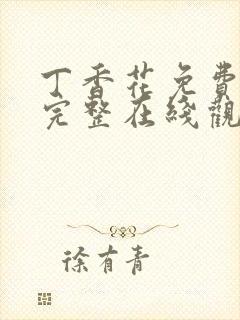 丁香花免費
完整在綫觀
徐有青